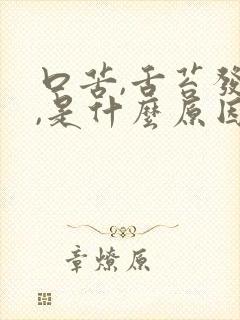 口苦,舌苔發
,是什麼原因
章燎原